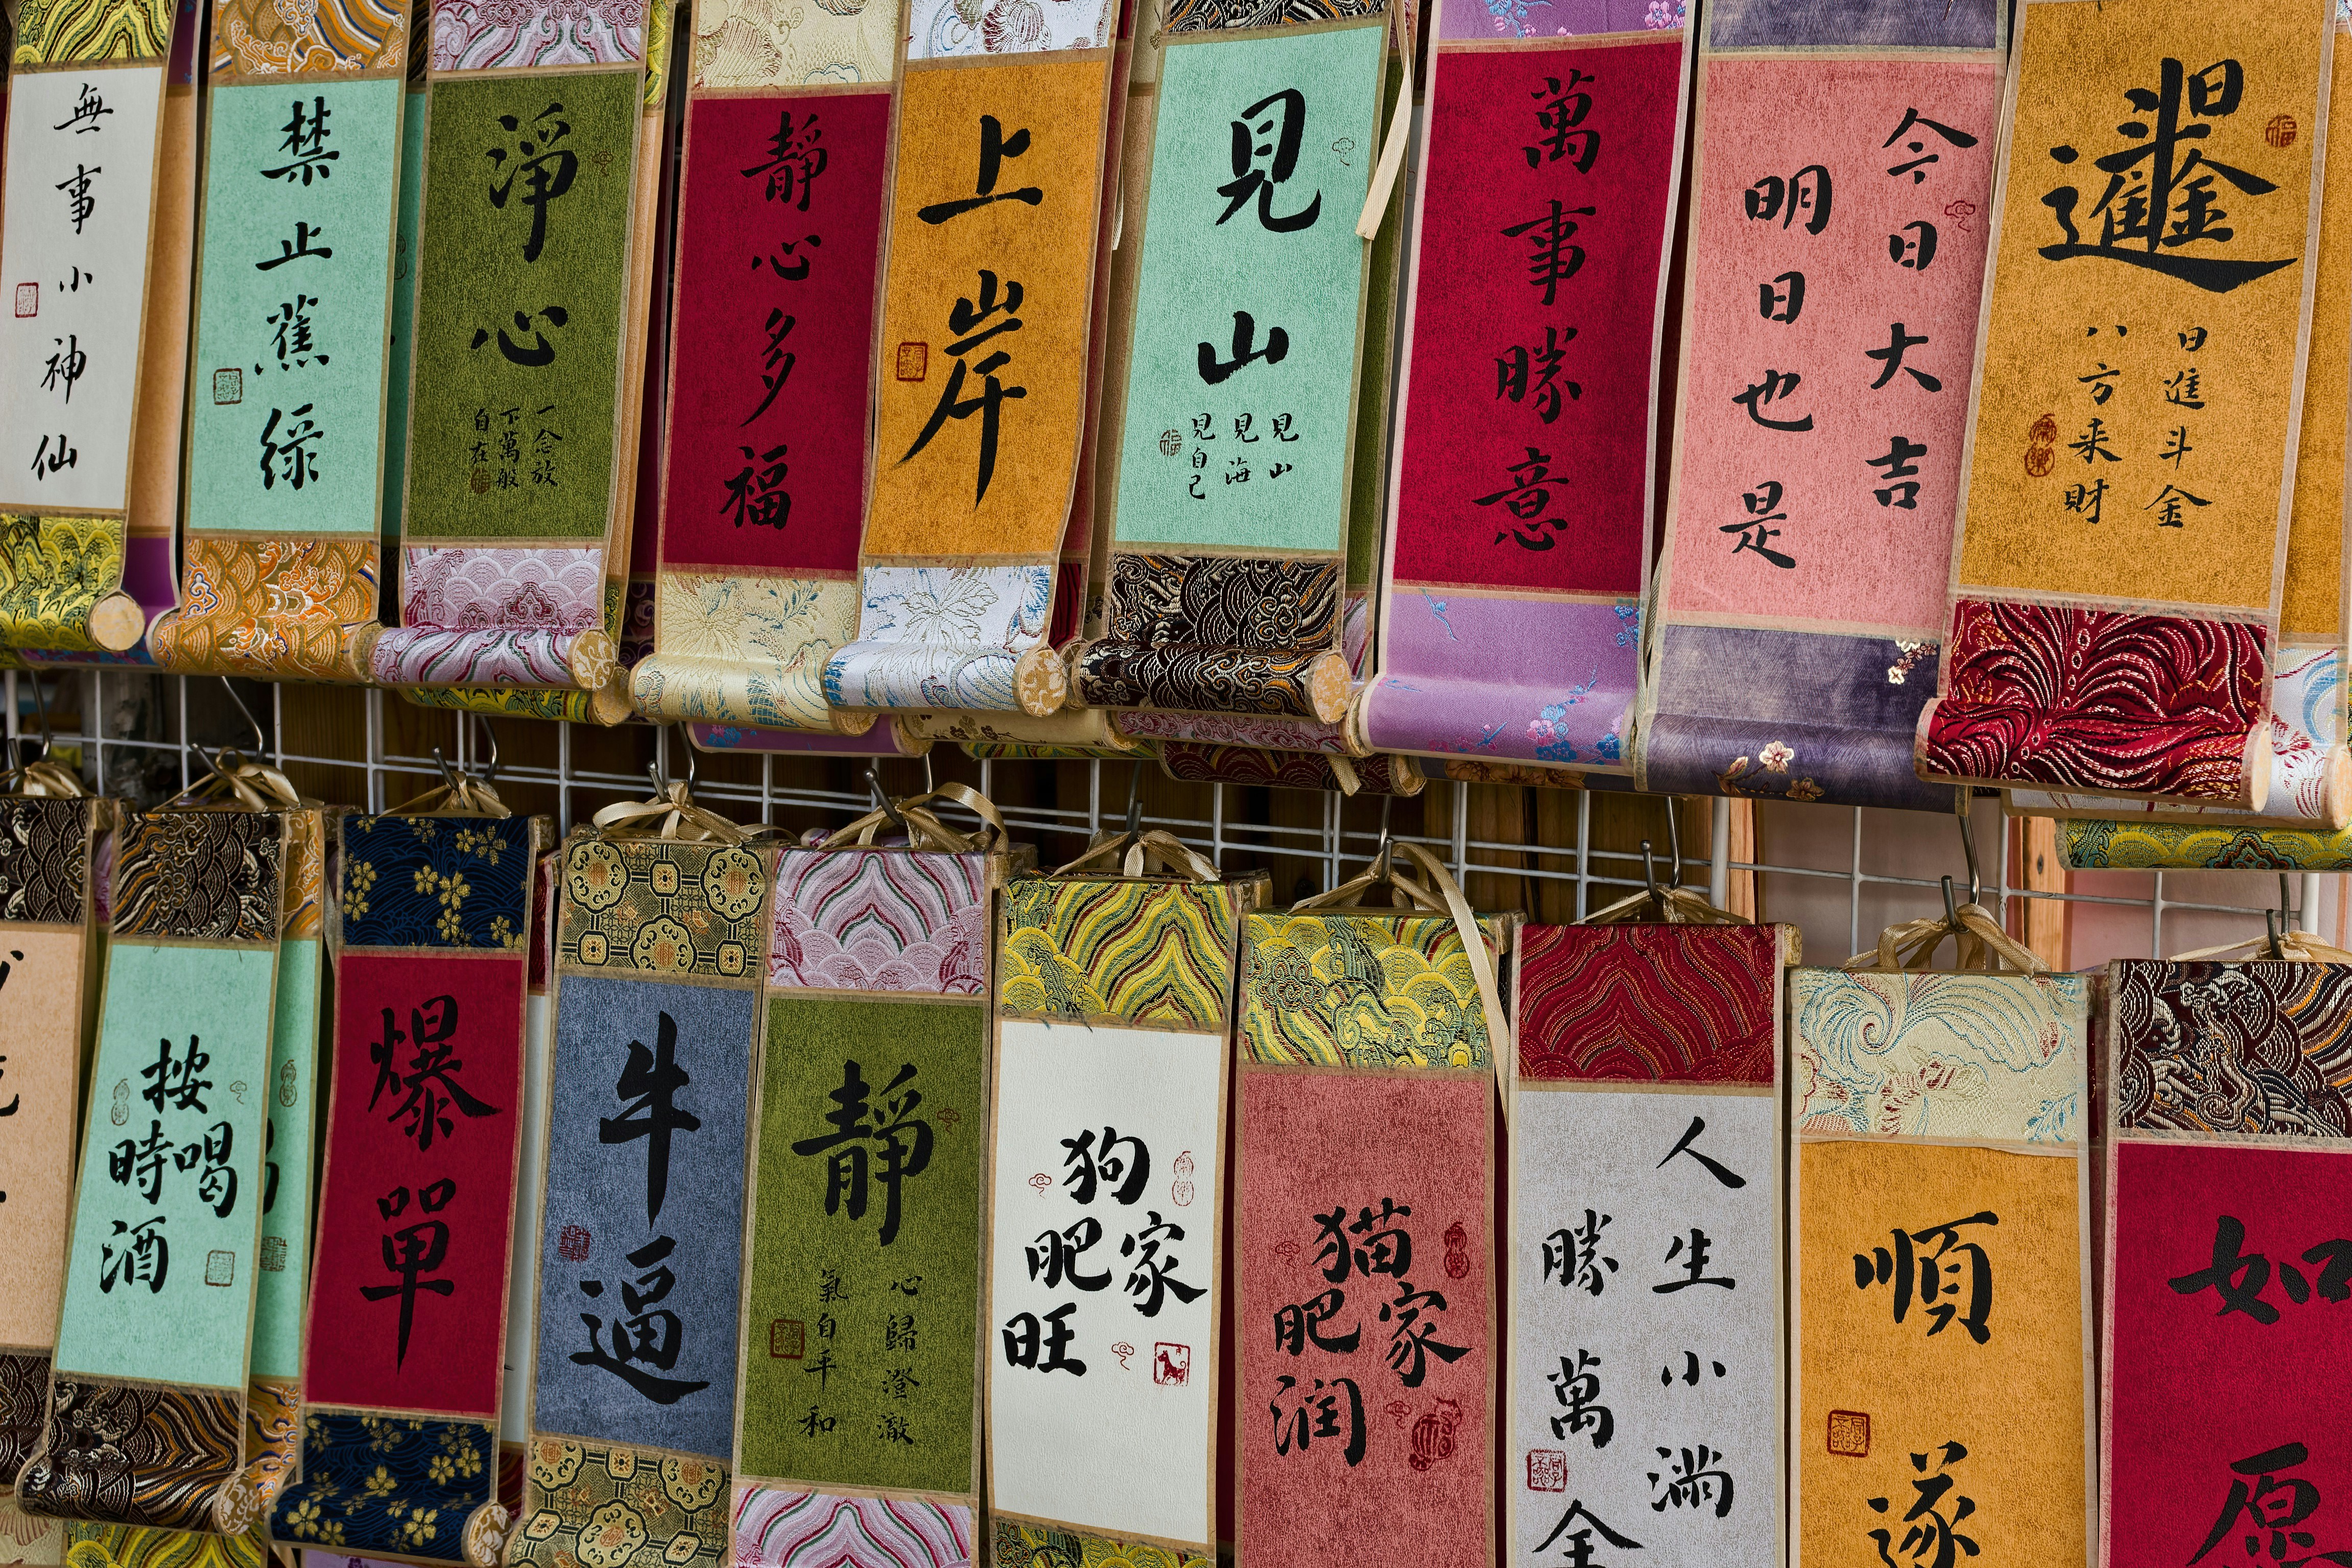 無事小神仙
禁止蕉綠
淨心
一念放
下萬般
自在
靜心多福
上岸
見山
見山
見海
見自己
萬事勝意
今日大吉
明日也是
日進斗金
日進斗金
八方来財
按
時喝
酒
爆單
牛逼
靜
心歸澄澈
氣自平和
狗
肥家
旺
猫
肥家
润
人生小满
勝萬全
順遂
如愿